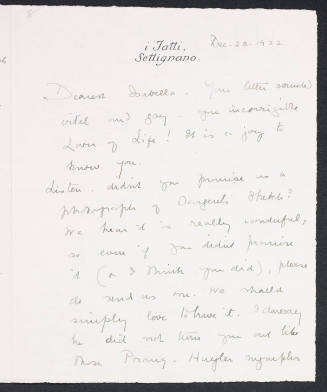 i Tatti,
Settignano.
Dec. 20. 1922
Dearest Isabella. Your letter sounded
vital and gay - you incorrigible
Lover of Life! It is a joy to
know you.
Listen. didn't you promise us a
photograph of Sargent's Sketch?
We hear it is really wonderful,
so even if you didn't promise
it (as I think you did), please
do send us one. We should
simply love to have it. I daresay
he did not turn you out like
those nymphs